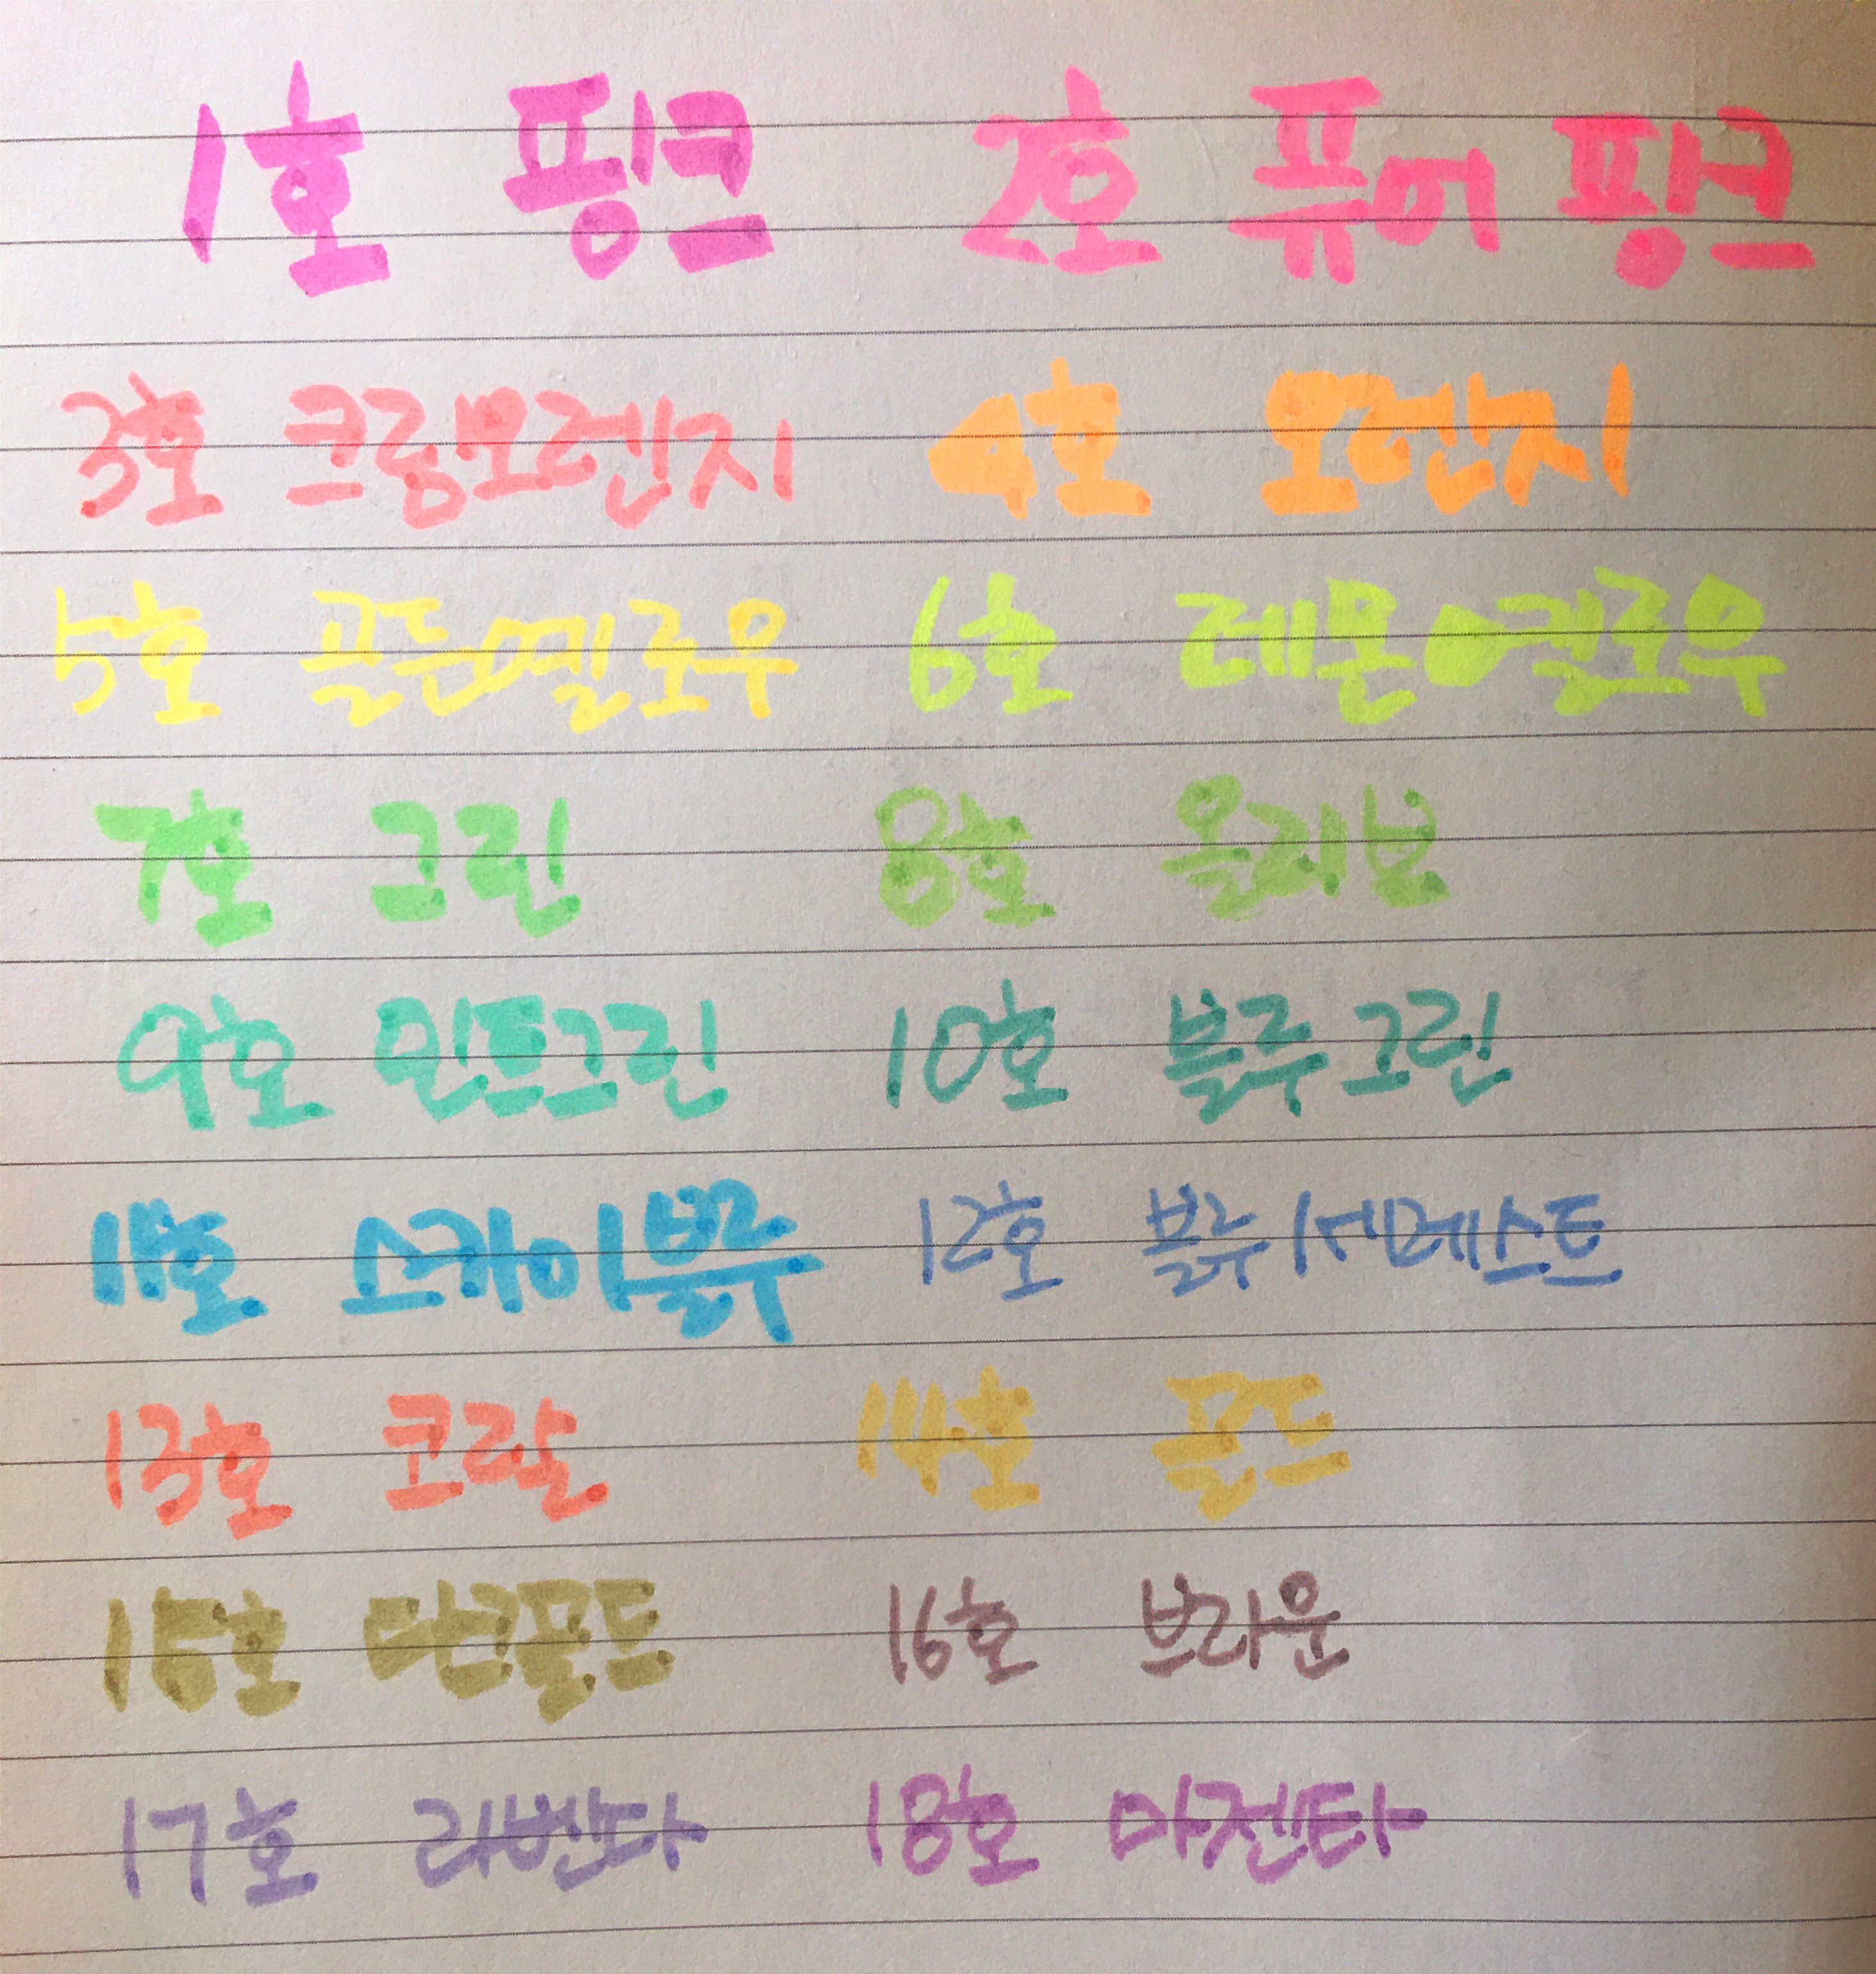 1호 핑크 2호 퓨어 핑크
3호 크림오렌지 4호 오렌지
5호 골든옐로우 6호 레몬옐로우
7호 그린 8호 올리브
9호 민트그린 10호 블루그린
11호 스카이블루 12호 블루세레스트
13호 코랄 14호 골드
15호 다크골드 16호 브라운
17호 라벤다 18호 마젠타